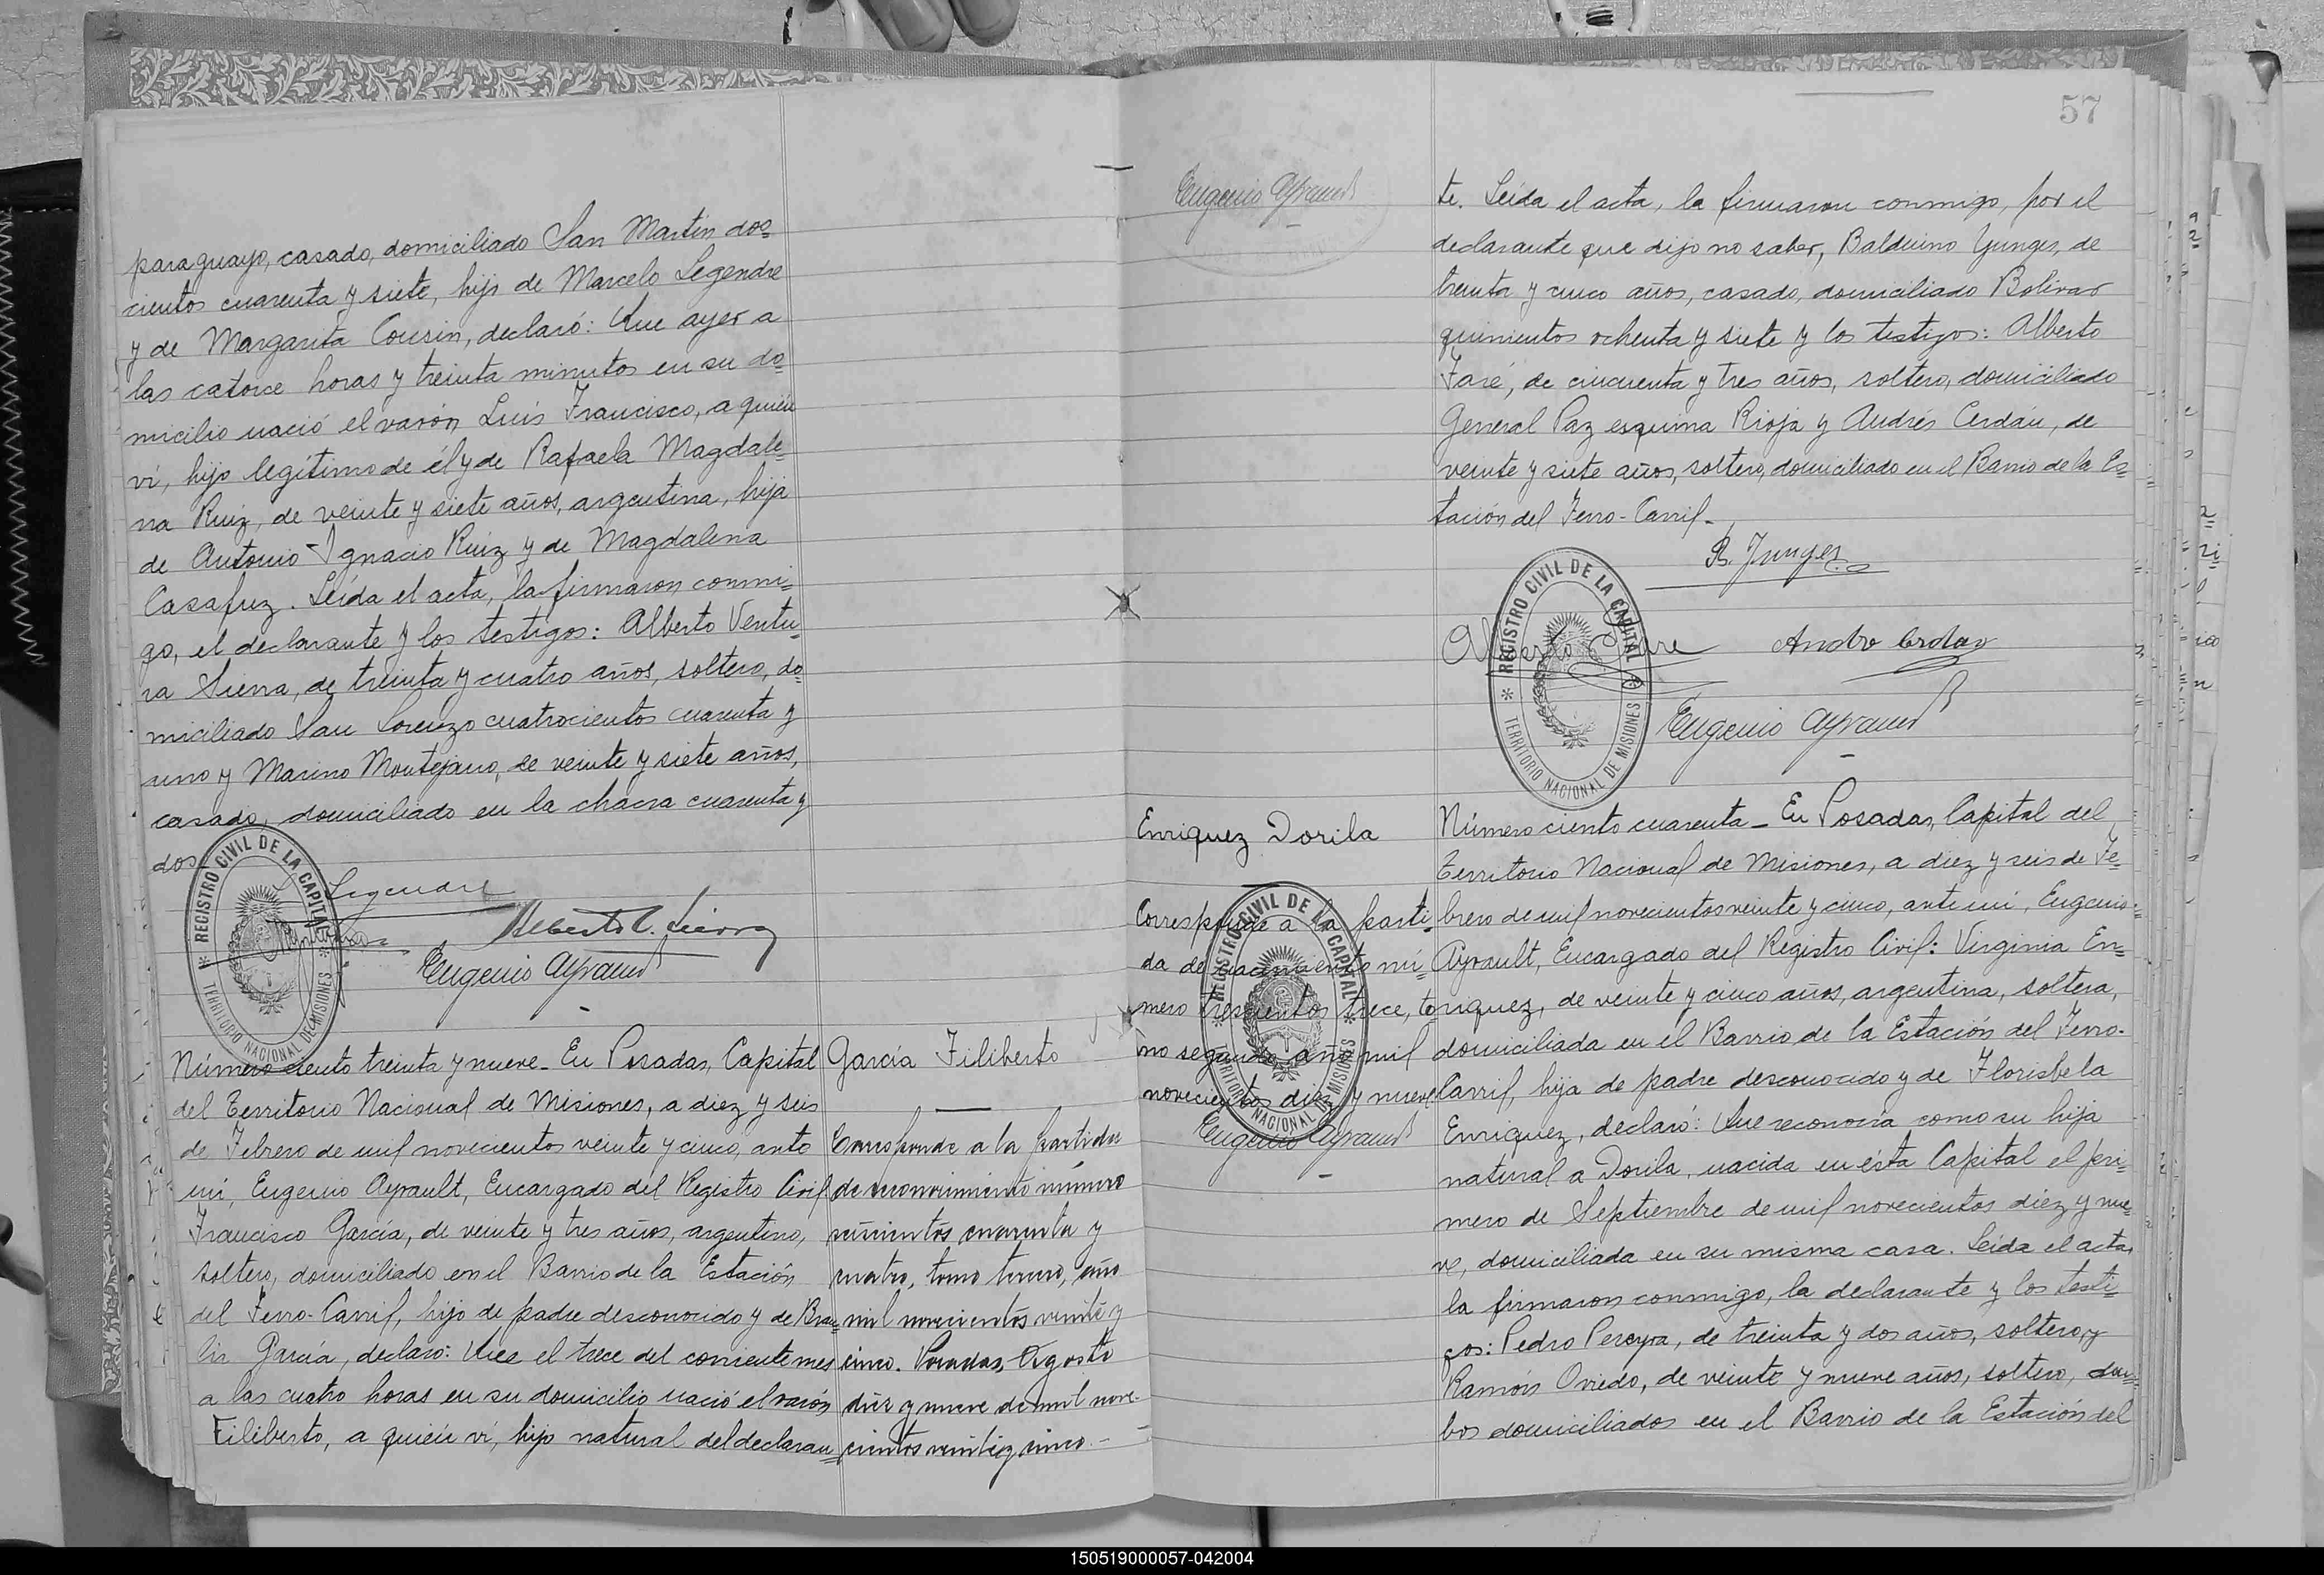 paraguayo, casado, domiciliado San Martín dos=
cientos cuarenta y siete, hijo de Marcelo Legendre
y de Margarita Cousin, declaró: Que ayer a
las catorce horas y treinta minutos en su do=
micilio nació el varón Luis Francisco, a quien
ví, hijo legítimo de él y de Rafaela Magdale=
na Ruiz, de veinte y siete años, argentina, hija
de Antonio Ignacio Ruiz y de Magdalena
Casafuz. Leída el acta, la firmaron conmi=
go, el declarante y los testigos: Alberto Ventu=
ra Sierra, de treinta y cuatro años, soltero, do=
miciliado San Lorenzo cuatrocientos cuarenta y
uno y Marino Montejano, de veinte y siete años,
casado, domiciliado en la chacra cuarenta y
dos
Legendre
Alberto V. Sierra
Eugenio Ayrault
REGISTRO CIVIL DE LA CAPITAL
* TERRITORIO NACIONAL DE MISIONES *
Número ciento treinta y nueve - En Posadas, Capital
del Territorio Nacional de Misiones, a diez y seis
de Febrero de mil novecientos veinte y cinco, ante
mí, Eugenio Ayrault, Encargado del Registro Civil
Francisco García, de veinte y tres años, argentino,
soltero, domiciliado en el Barrio de la Estación
del Ferro-Carril, hijo de padre desconocido y de
García, declaró: Que el trece del corriente mes
a las cuatro horas en su domicilio nació el varón
Filiberto, a quién ví, hijo natural del declaran=
García Filiberto
Corresponde a la partida
de reconocimiento número
cuarenta y
cuatro, tomo tercero, año
mil novecientos veinte y
cinco. Posadas, Agosto
diez y nueve de mil nove-
cientos veinte y cinco.-
Eugenio Ayrault
57
te. Leída el acta, la firmaron conmigo, por el
declarante que dijo no saber, Balduino Yunges, de
treinta y cinco años, casado, domiciliado Bolívar
quinientos ochenta y siete y los testigos: Alberto
Faré, de cincuenta y tres años, soltero, domiciliado
General Paz esquina Rioja y Andrés Cerdán, de
veinte y siete años, soltero, domiciliado en el Barrio de la Es=
tación del Ferro-Carril.-
B. Junges
Alberto Fare
Eugenio Ayrault
REGISTRO CIVIL DE LA CAPITAL
* TERRITORIO NACIONAL DE MISIONES *
Enriquez Dorila
Corresponde a la parti=
da de nacimiento nú=
mero trescientos trece, to
mo segundo año mil
novecientos diez y nueve
Eugenio Ayrault
REGISTRO CIVIL DE LA CAPITAL
* TERRITORIO NACIONAL DE MISIONES *
Número ciento cuarenta - En Posadas, Capital del
Territorio Nacional de Misiones, a diez y seis de Fe=
brero de mil novecientos veinte y cinco, ante mí, Eugenio
Ayrault, Encargado del Registro Civil: Virginia En=
riquez, de veinte y cinco años, argentina, soltera,
domiciliada en el Barrio de la Estación del Ferro-
Carril, hija de padre desconocido y de Florisbela
Enriquez, declaró: Que reconocía como su hija
natural a Dorila, nacida en ésta Capital el pri=
mero de Septiembre de mil novecientos diez y nue=
ve, domiciliada en su misma casa. Leída el acta,
la firmaron conmigo, la declarante y los testi=
gos: Pedro Pereyra, de treinta y dos años, soltero, y
Ramón Oviedo, de veinte y nueve años, soltero, am=
bos domiciliados en el Barrio de la Estación del
150519000057-042004